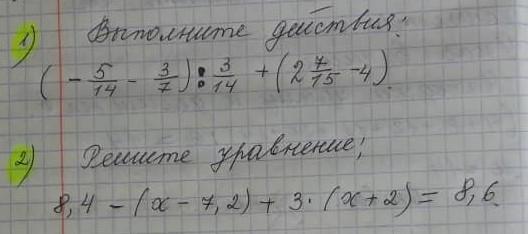 1) Выполните действия:
(- 5/14 - 3/7) : 3/14 + (2 7/15 - 4)
2) Решите уравнение;
8,4 - (x - 7,2) + 3 · (x + 2) = 8,6.